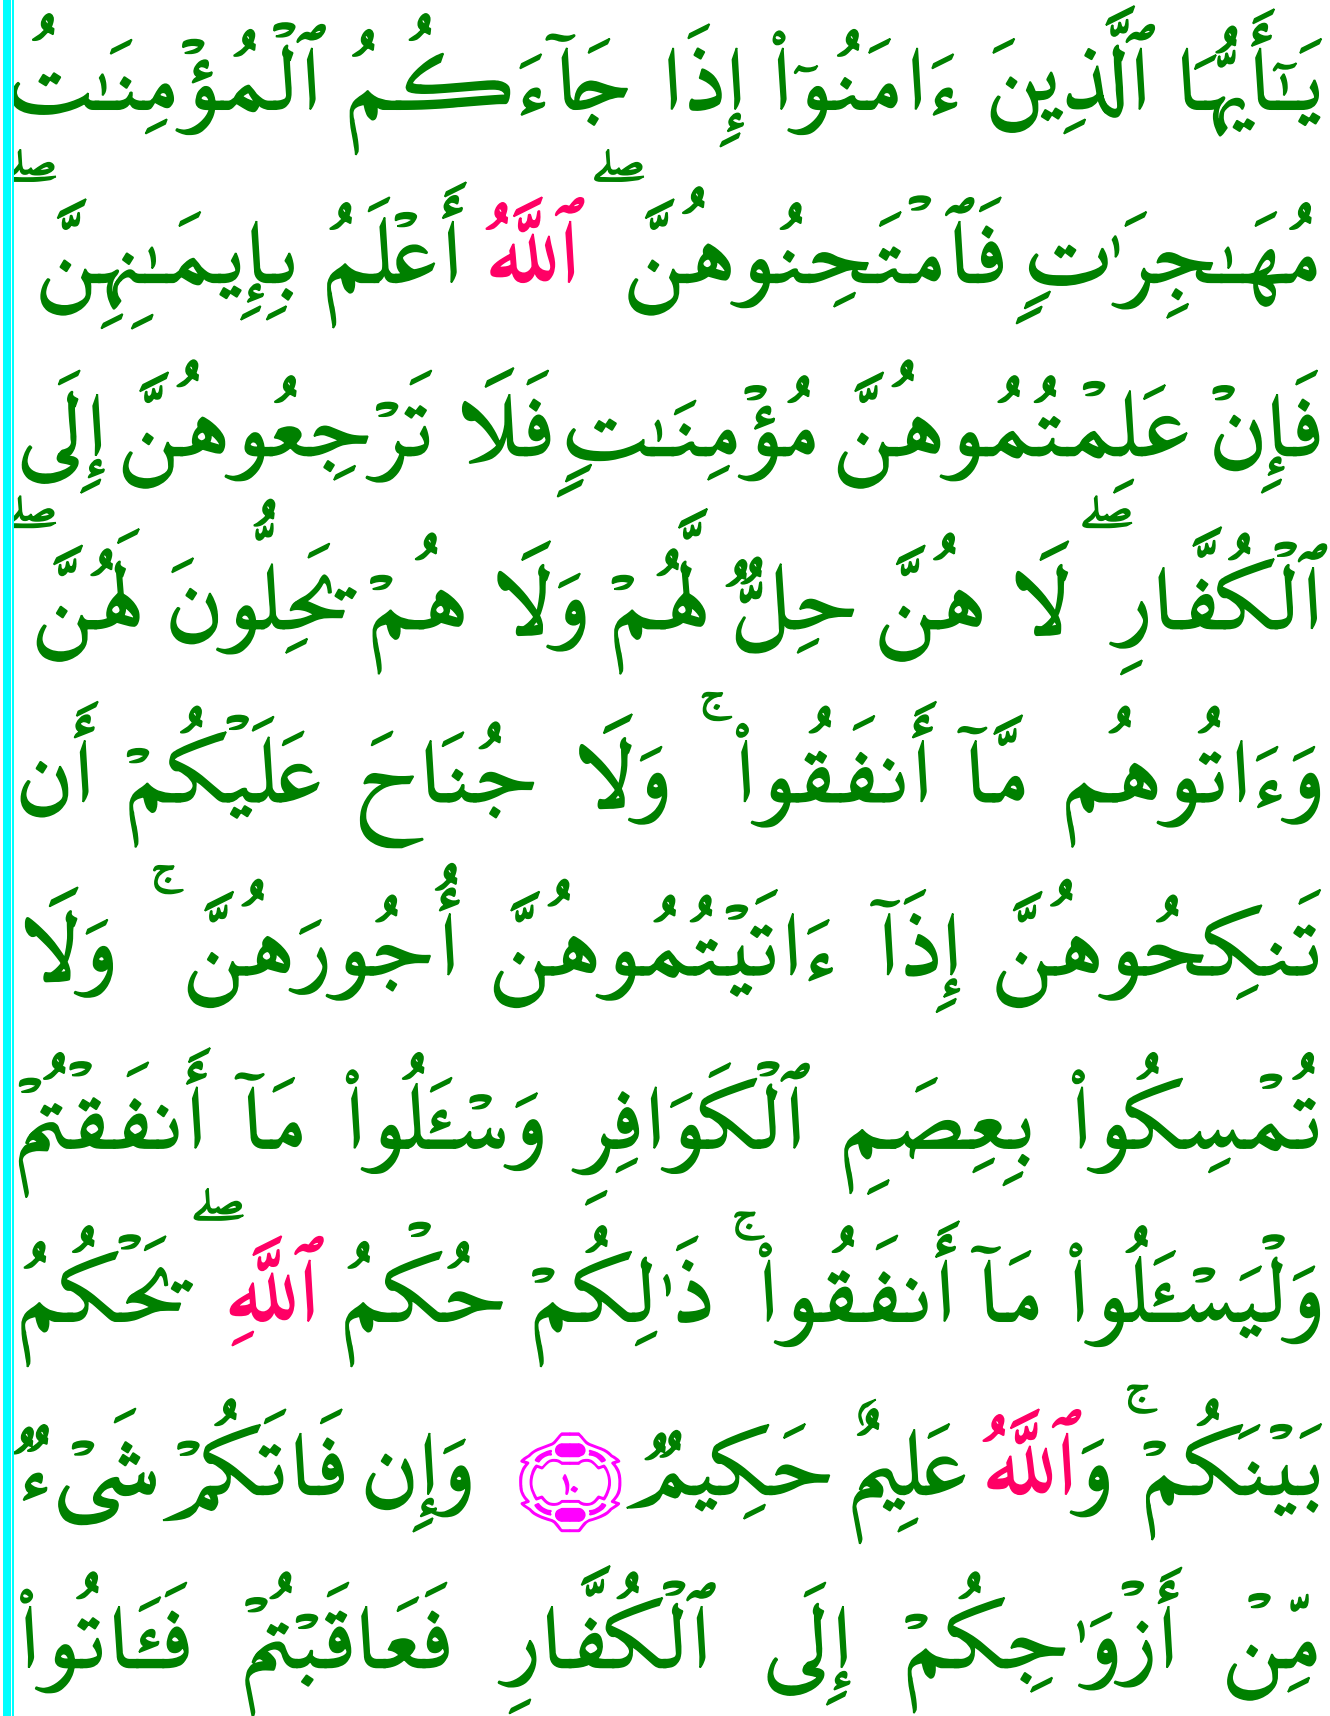 يَـٰٓأَيُّهَا ٱلَّذِينَ ءَامَنُوٓا۟ إِذَا جَآءَكُمُ ٱلْمُؤْمِنَـٰتُ
مُهَـٰجِرَٰتٍ فَٱمْتَحِنُوهُنَّ ۖ ٱللَّهُ أَعْلَمُ بِإِيمَـٰنِهِنَّ ۖ
فَإِنْ عَلِمْتُمُوهُنَّ مُؤْمِنَـٰتٍ فَلَا تَرْجِعُوهُنَّ إِلَى
ٱلْكُفَّارِ ۖ لَا هُنَّ حِلٌّ لَّهُمْ وَلَا هُمْ يَحِلُّونَ لَهُنَّ ۖ
وَءَاتُوهُم مَّآ أَنفَقُوا۟ ۚ وَلَا جُنَاحَ عَلَيْكُمْ أَن
تَنكِحُوهُنَّ إِذَآ ءَاتَيْتُمُوهُنَّ أُجُورَهُنَّ ۚ وَلَا
تُمْسِكُوا۟ بِعِصَمِ ٱلْكَوَافِرِ وَسْـَٔلُوا۟ مَآ أَنفَقْتُمْ
وَلْيَسْـَٔلُوا۟ مَآ أَنفَقُوا۟ ۚ ذَٰلِكُمْ حُكْمُ ٱللَّهِ ۖ يَحْكُمُ
بَيْنَكُمْ ۚ وَٱللَّهُ عَلِيمٌ حَكِيمٌ ١٠ وَإِن فَاتَكُمْ شَىْءٌ
مِّنْ أَزْوَٰجِكُمْ إِلَى ٱلْكُفَّارِ فَعَاقَبْتُمْ فَـَٔاتُوا۟